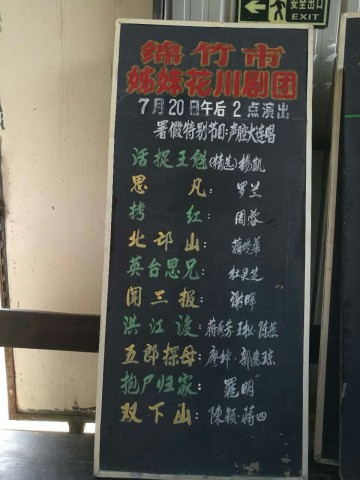 安全出口
EXIT
绵竹市
姊妹花川剧团
7月20日午后2点演出
暑假特别节目:声腔大连唱
活捉王魁(精选)杨凯
思凡: 罗兰
拷红: 周蓉
北邙山:
英台思兄: 杜灵芝
闹三报: 谢晖
洪江渡: 蒋秀芳·王松·陈燕
五郎探母: 廖坤·郭惠琼
抱尸归家: 罷明
双下山: 陳颖·蒋四